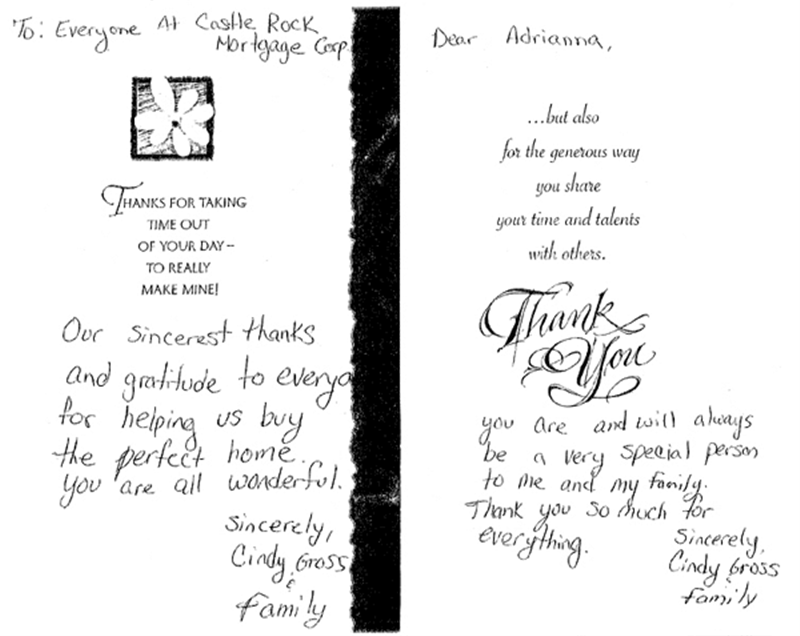 To: Everyone At Castle Rock
Mortgage Corp
THANKS FOR TAKING
TIME OUT
OF YOUR DAY–
TO REALLY
MAKE MINE!
Our sincerest thanks
and gratitude to everyo
for helping us buy
the perfect home.
you are all wonderful.
Sincerely,
Cindy Gross
&
Family
Dear Adrianna,
...but also
for the generous way
you share
your time and talents
with others.
Thank
You
you are and will always
be a very special person
to me and my family.
Thank you so much for
everything.
Sincerely,
Cindy Gross
&
Family